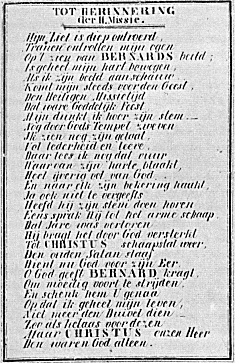 TOT HERINNERING
der H. Missie.
Mijn Ziel is diep ontroerd,
Tranen ontrollen mijn ogen
Op 't zien van BERNARDS beeld;
Is geheel mijn hart bewogen
Als ik zijn beeld aanschouw,
Komt mijn steeds voor den Geest
Den Heiligen Missietijd
Dat ware Goddelijk Feest
Mijn dunkt ik hoor zijn stem
Nog door Gods Tempel zweven
Ik zien nog zijn gelaat
Tot tederheid en leere
Daar lees ik nog dat vuur
Waarvan zijn harte blaakt,
Heel ijverig vol van God
En naar elk zijn bekering haakt,
Ja ook niet te vergeefs
Heeft hij zijn stem doen horen
Eens sprak Hij tot het arme schaap
Dat Jare was verloren
Hij bragt het door God versterkt
Tot CHRISTUS schaapstal weer,
Den ouden Satan staaf
Dient nu God voor zijn Eer
O God geeft BERNARD kragt
Om moedig voort te strijden,
En schenk hem U genaa
Op dat ik geheel mijn leven,
Niet meer den Duivel dien
Zoo als helaas voor dezen
Maar CHRISTUS onzen Heer
Den waren God alleen.